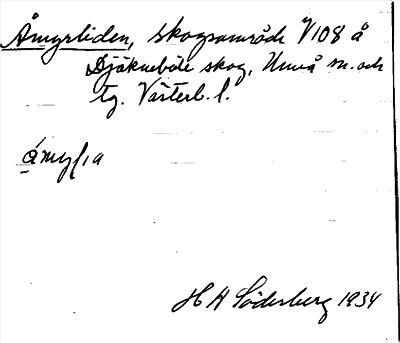 Åmyrliden, skogsområde V108 å
Djäkneböle skog, Umeå sn. och
tg. Västerb. l.
H A Söderberg 1934